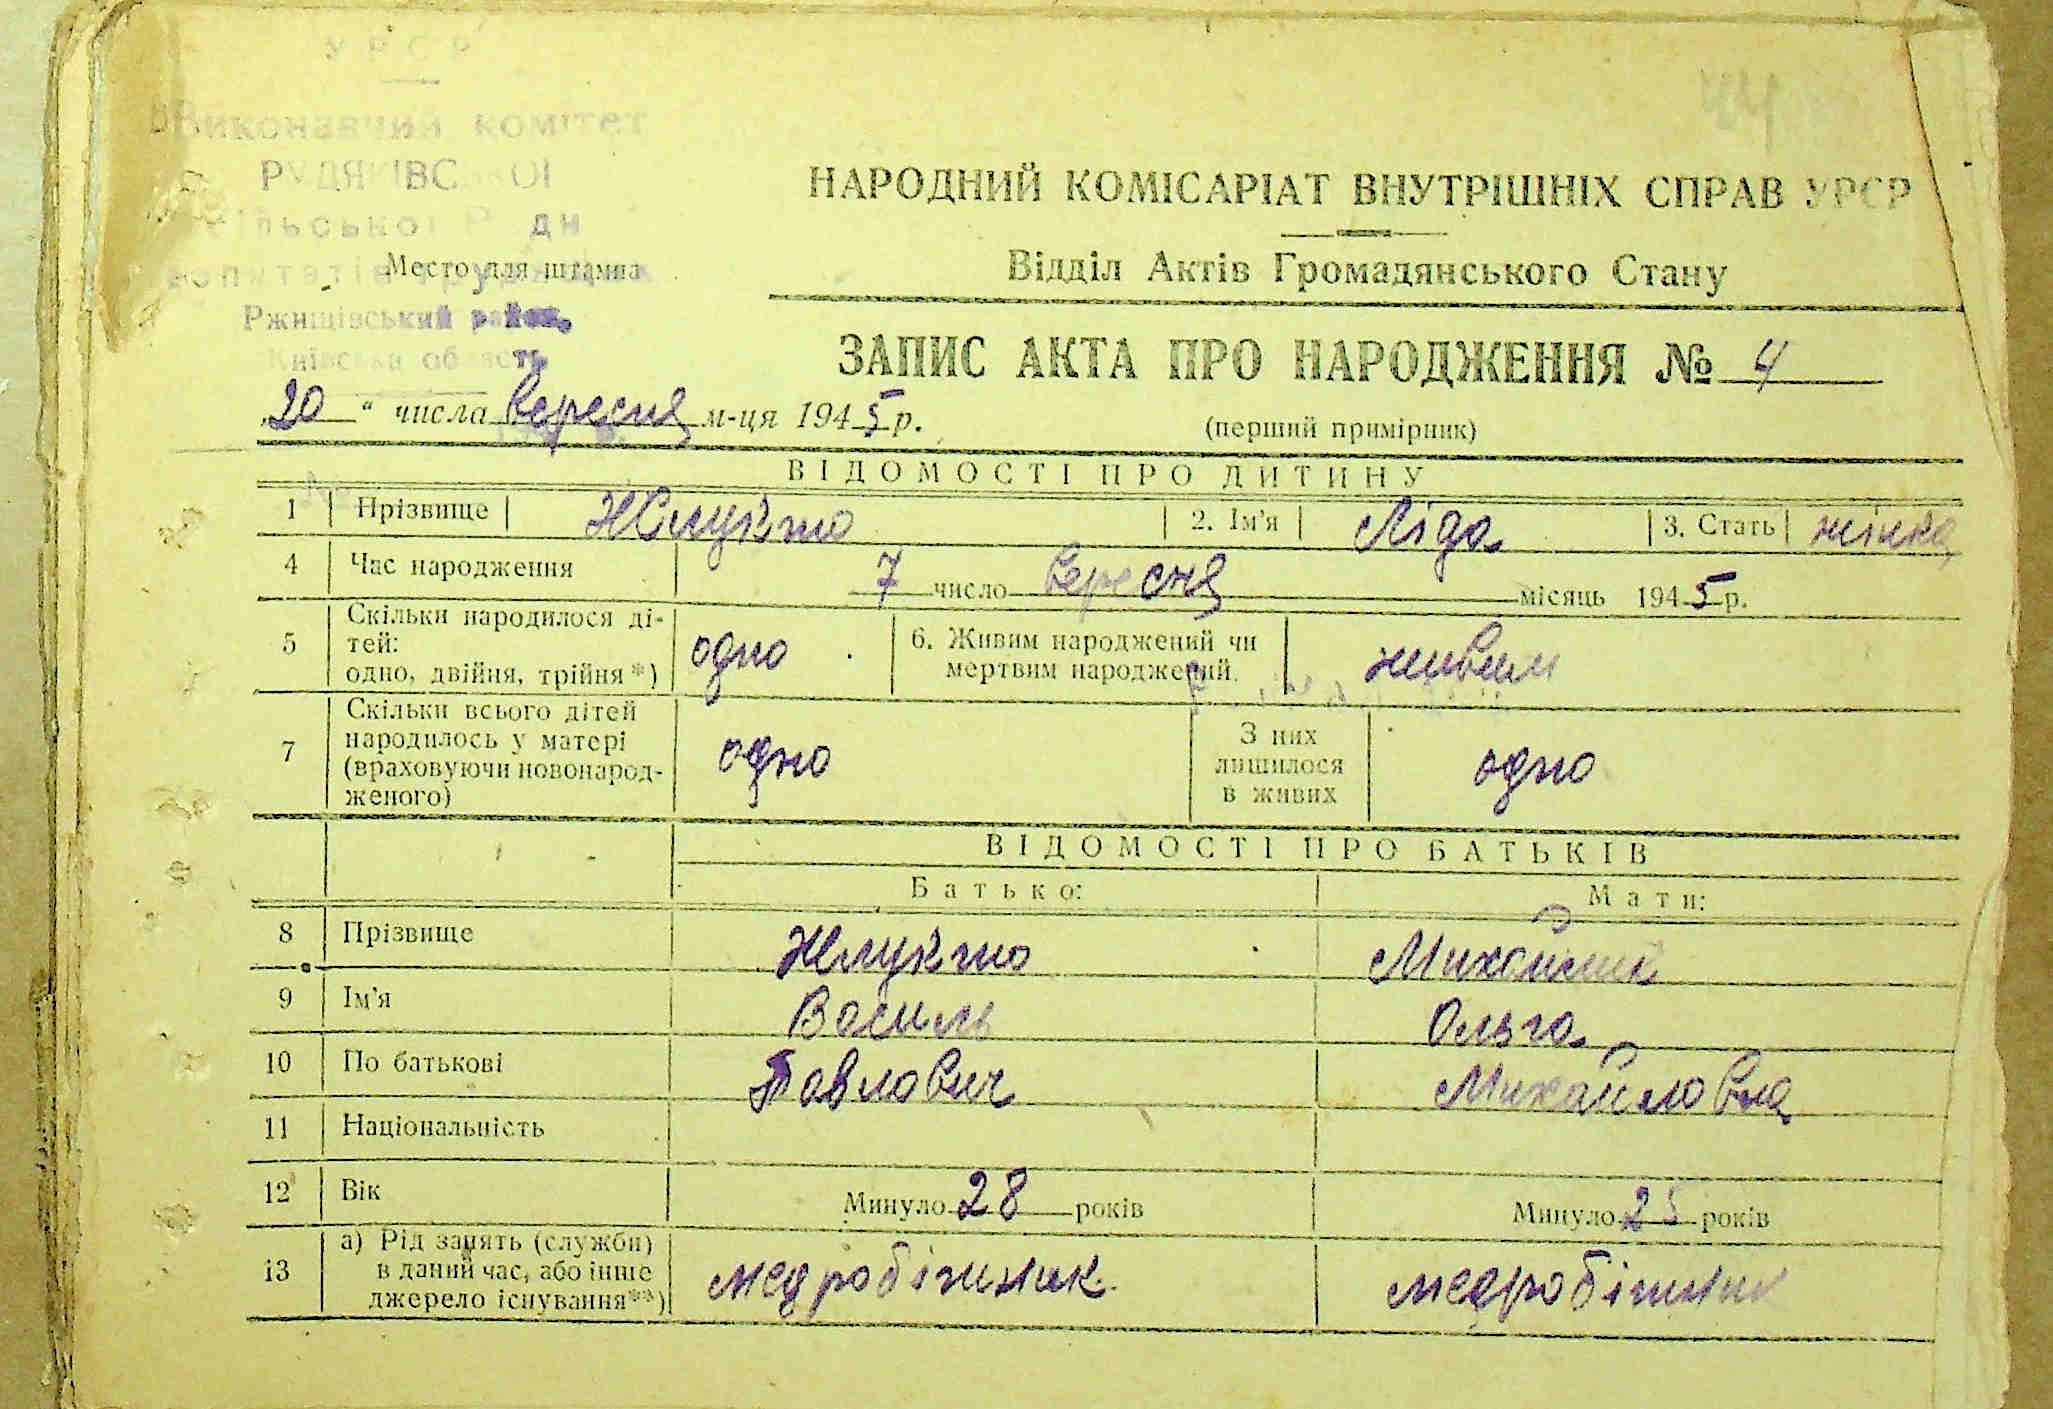 УРСР
Виконавчий комітет
РУДЯКІВСЬКОЇ
сільської Ради
Место для штампа
Ржищівський район,
Київська область
44
НАРОДНИЙ КОМІСАРІАТ ВНУТРІШНІХ СПРАВ УРСР
Відділ Актів Громадянського Стану
ЗАПИС АКТА ПРО НАРОДЖЕННЯ № 4
„20" числа вересня м-ця 1945 р.
(перший примірник)
ВІДОМОСТІ ПРО ДИТИНУ
1 Прізвище Жлукто 2. Ім'я Ліда 3. Стать жінка
4 Час народження 7 число вересня місяць 1945 р.
5 Скільки народилося ді-
тей:
одно, двійня, трійня*) одно 6. Живим народжений чи
мертвим народжений. живим
7 Скільки всього дітей
народилось у матері
(враховуючи новонарод-
женого) одно З них
лишилося
в живих одно
ВІДОМОСТІ ПРО БАТЬКІВ
Батько: Мати:
8 Прізвище Жлукто Михайлик
9 Ім'я Василь Ольга
10 По батькові Павлович Михайловна
11 Національність
12 Вік Минуло 28 років Минуло 25 років
13 а) Рід занять (служби)
в даний час, або інше
джерело існування**) медробітник медробітник